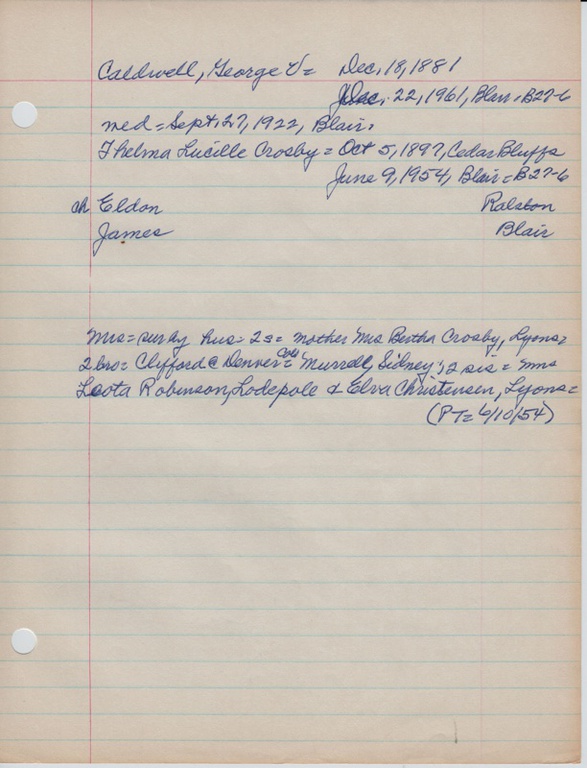 Caldwell, George V = Dec, 18, 1881
Dec. 22, 1961, Blair = B27-6
med = Sept, 27, 1922, Blair,
Thelma Lucille Crosby = Oct 5, 1897, Cedar Bluffs
June 9, 1954, Blair = B27-6
ch Eldon Ralston
James Blair
Mrs = sur by hus = 2s = mother Mrs Bertha Crosby, Lyons =
2 bro = Clifford @ Denver Colo = Murrell, Sidney; 2 sis = Mrs
Leota Robinson, Lodepole & Elva Christensen, Lyons =
(PT = 6/10/54)